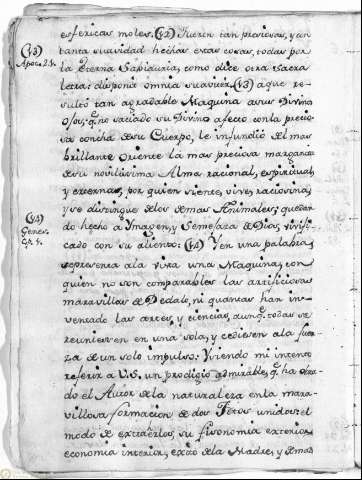 esfericas moles. (12) Fueron tan preciosas, y con
(13)
Apoc. 21.
tanta suavidad hechas estas cosas, todas por
la eterna Sapiduria, como dice otra Sacra
letra: disponit omnia suaviter (13) a que re-
sultò tan agradable Maquina a sus Divinos
Ojos; q.e no saciado su Divino afecto con la precio-
sa concha de su Cuerpo, le infundiò el mas
brillante Oriente la mas preciosa margarita
de su novilisima Alma racional, espiritual,
y eterna, por quien siente, vive, raciosina,
y se distingue de los de mas Animales; quedan-
(14)
Genes.
cp. 1.
do hecho a Imagen, y Semejanza de Dios, vivifi-
cado con su aliento: (14) Y en una palabra,
representa a la vista una Maquina, con
quien no son comparables las artificiosas
maravillas de Dedalo, ni quantas han in-
ventado las artes, y ciencias, aunq.e todas se
reuniesen en una sola, y cediesen a la fuer-
za de un solo impulso: Y siendo mi intento
referir a V.S. un prodigio admirable, q.e ha obra-
do el Autor de la naturaleza en la mara-
villosa formacion de dos Fetos unidos: el
modo de extraerlos, su fisonomia exterior,
economia interior, exito de la Madre, y demas